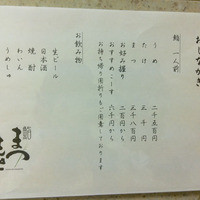 おしながき
鮨 一人前
うめ 二千五百円
たけ 三千円
まつ 三千八百円
お好み握り 二百円から
おすすめコース 六千円から
お持ち帰り用折りもご用意しております
お飲み物
生ビール
日本酒
焼酎
わいん
うめしゅ
鮨
まつ